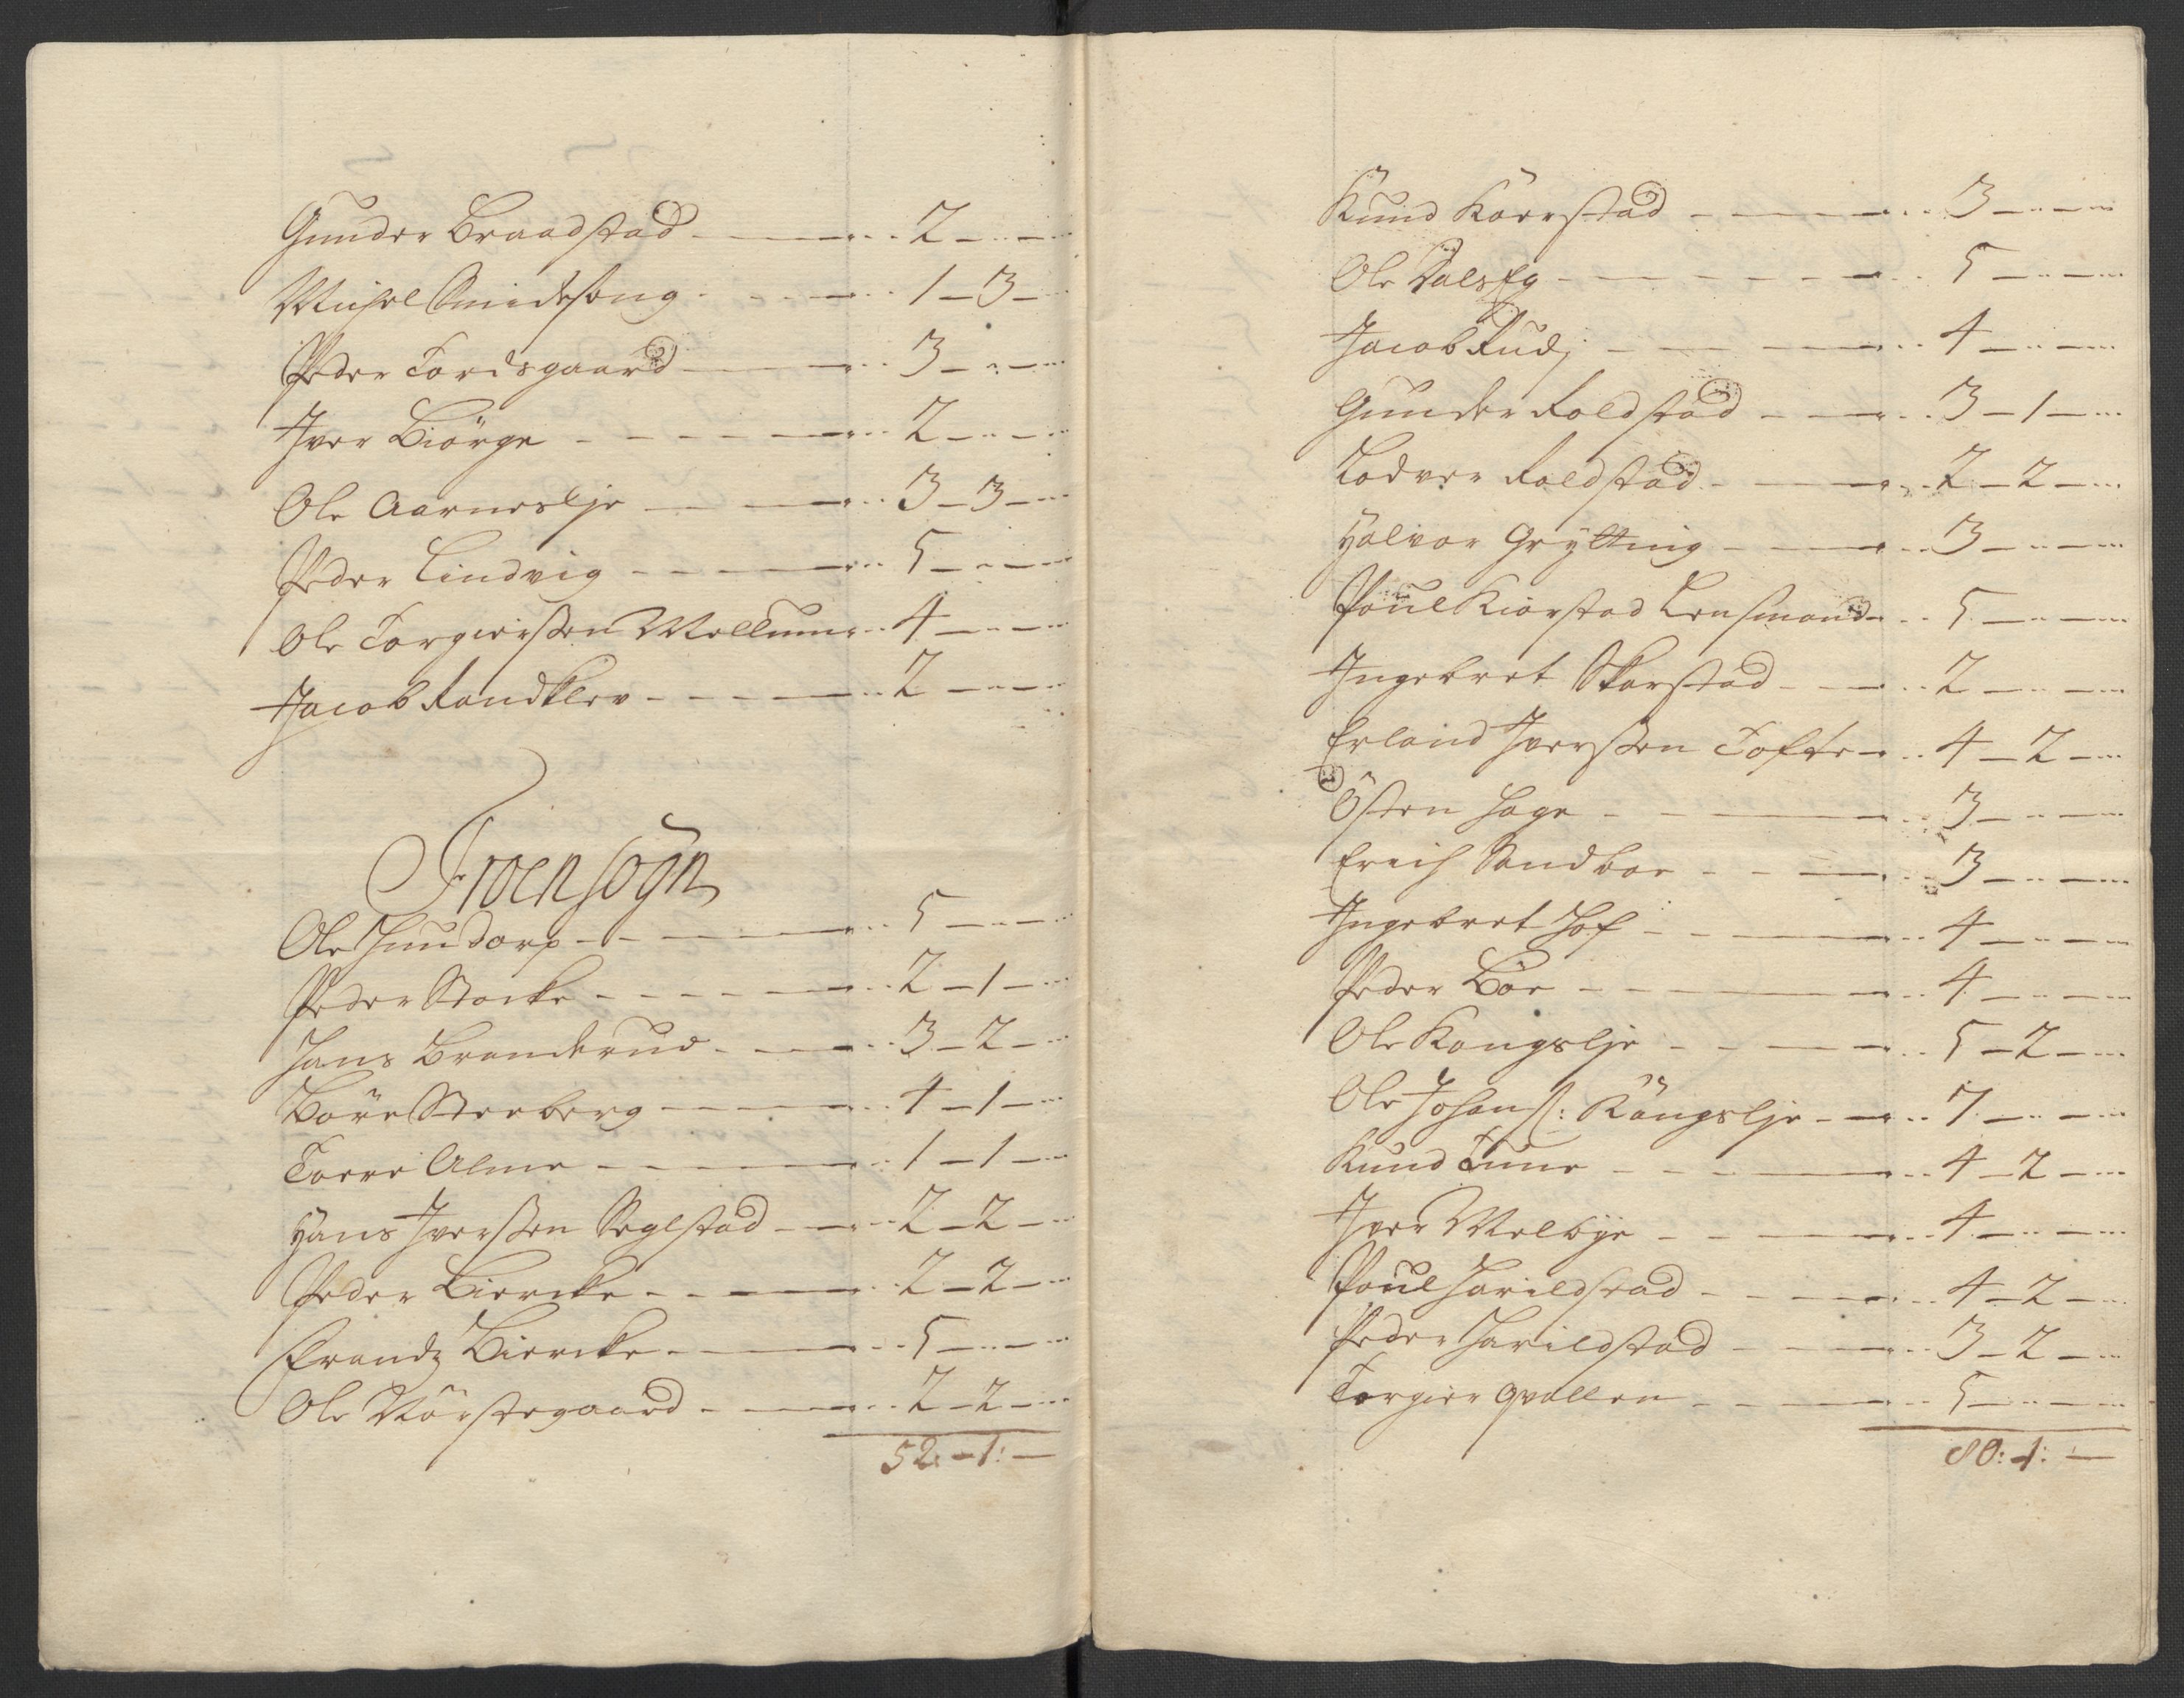 Gunder Braadstad - - - 2 - - -
Michel Smidesong - - - 1 - 3 -
Peder Fordsgaard - - - 3 - - -
Jver Biörge - - - 2 - - -
Ole Aarneslje - - - 3 - 3 -
Peder Lindvig - - - 5 - - -
Ole Torgiersßen Mellum - 4 - - -
Jacob Randklev - - - 2 - - -
Froen sogn
Ole Hundorp - - - 5 - - -
Peder Stocke - - - 2 - 1 -
Hans Branderud - - - 3 - 2 -
Baöre Steeberg - - - 4 - 1 -
Torre Alme - - - 1 - 1 -
Hans Jversßen Seglstad - - 2 - 2 -
Peder Biercke - - - 2 - 2 -
Frandz Biercke - - - 5 - - -
Ole Nörstegaard - - - 2 - 2 -
52: - 1: -
Knud Kaerstad - - - 3 - - -
Ole Dalseg - - - 5 - - -
Jacob Rudj - - - 4 - - -
Gunder Roldstad - - - 3 - 1 -
Lodver Roldstad - - - 2 - 2 -
Halvor Grÿtting - - - 3 - - -
Poul Kiorstad Lensmand - 5 - - -
Ingebret Skarstad - - - 2 - - -
Erland Jversßen Tofte - 4 - 2 -
Östen Hage - - - 3 - - -
Erich Sandboe - - - 3 - - -
Ingebret Hof - - - 4 - - -
Peder Böe - - - 4 - - -
Ole Kongslje - - - 5 - 2 -
Ole Johanß: Kongslje - - 7 - - -
Knud Tune - - - 4 - 2 -
Jver Melbÿe - - - 4 - - -
Poul Harildstad - - - 4 - 2 -
Peder Harildstad - - - 3 - 2 -
Torgier Qvallen - - - 5 - - -
80: 1: -